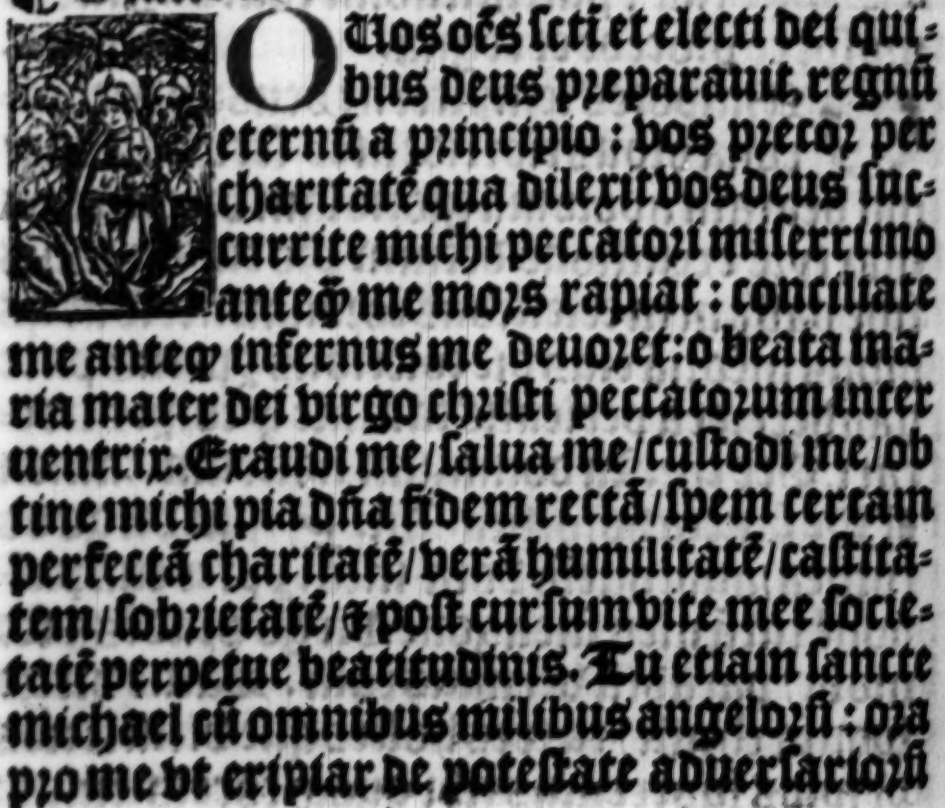 O Uos oēs ſcti̅ et electi dei qui⸗
bus deus preparauit, regnū
eternū a principio : vos precor per
charitatē qua dilexit vos deus ſuc⸗
currite michi peccatori miſerrimo
anteq̄ me mors rapiat : conciliate
me anteꝙ infernus me deuoret: o beata ma⸗
ria mater dei virgo chriſti peccatorum inter
uentrix. Exaudi me/ ſalua me/ cuſtodi me/ ob
tine michi pia dn̄a fidem rectā/ ſpem certam
perfectā charitatē/ verā humilitatē/ caſtita⸗
tem/ ſobrietatē/ ⁊ poſt curſum vite mee ſocie⸗
tatē perpetue beatitudinis. Tu etiam ſancte
michael cū omnibus milibus angelorū : ora
pro me vt eripiar de poteſtate aduerſariorū